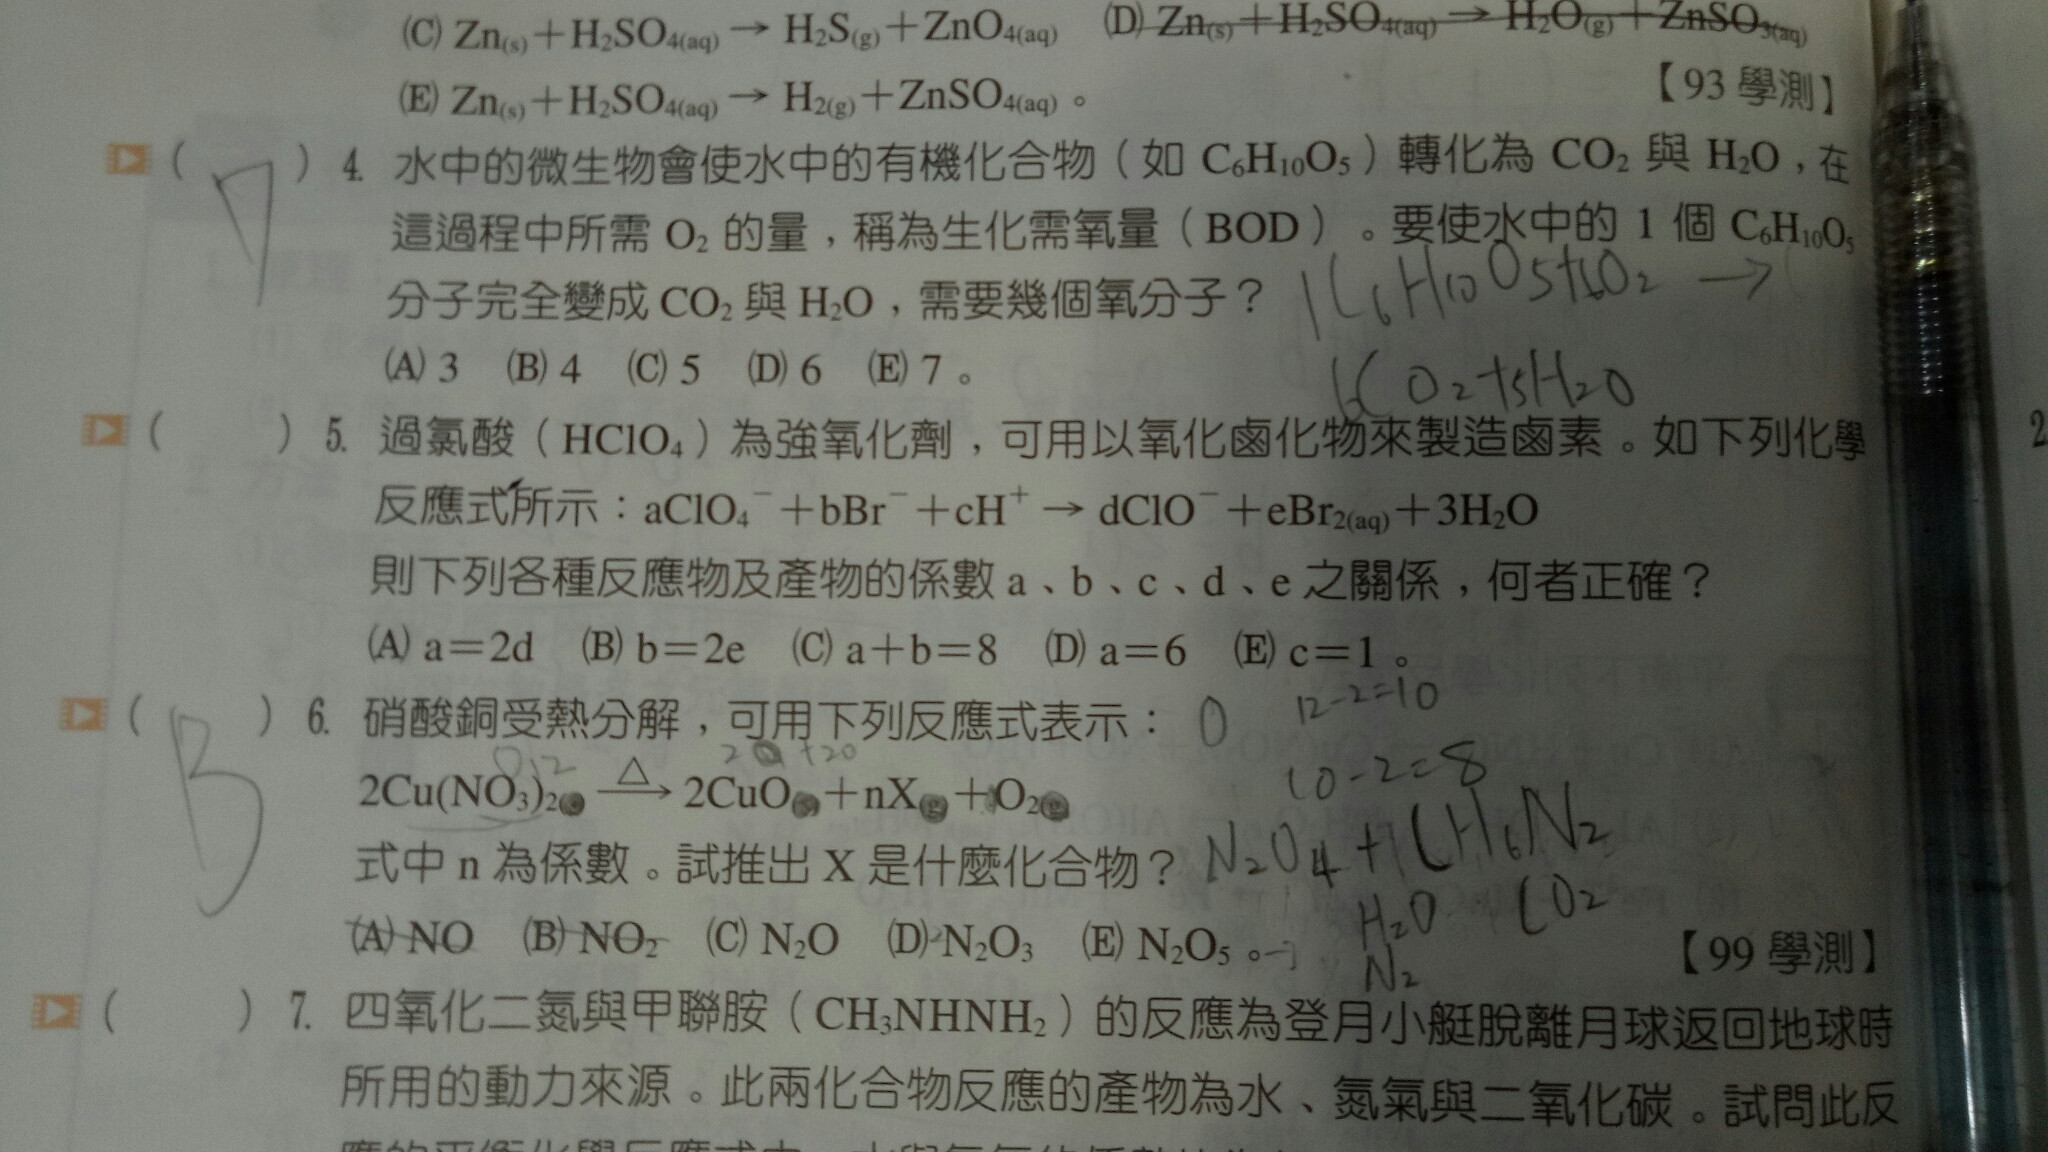 (C) Zn(s)+H₂SO₄(aq) → H₂S(g)+ZnO₄(aq) (D) Zn(s)+H₂SO₄(aq) → H₂O(g)+ZnSO₃(aq)
(E) Zn(s)+H₂SO₄(aq) → H₂(g)+ZnSO₄(aq)。 【93 學測】
( ) 4. 水中的微生物會使水中的有機化合物(如 C₆H₁₀O₅)轉化為 CO₂ 與 H₂O,在
這過程中所需 O₂ 的量,稱為生化需氧量(BOD)。要使水中的 1 個 C₆H₁₀O₅
分子完全變成 CO₂ 與 H₂O,需要幾個氧分子? 1C₆H₁₀O₅+6O₂ →
(A) 3 (B) 4 (C) 5 (D) 6 (E) 7。 6CO₂+5H₂O
( ) 5. 過氯酸(HClO₄)為強氧化劑,可用以氧化鹵化物來製造鹵素。如下列化學
反應式所示:aClO₄⁻+bBr⁻+cH⁺ → dClO⁻+eBr₂(aq)+3H₂O
則下列各種反應物及產物的係數 a、b、c、d、e 之關係,何者正確?
(A) a=2d (B) b=2e (C) a+b=8 (D) a=6 (E) c=1。
12-2=10
(B) 6. 硝酸銅受熱分解,可用下列反應式表示: O
10-2=8
2Cu(NO₃)₂ △→ 2CuO(s)+nX(g)+O₂(g)
式中 n 為係數。試推出 X 是什麼化合物? N₂O₄+CH₆N₂
H₂O CO₂
(A) NO (B) NO₂ (C) N₂O (D) N₂O₃ (E) N₂O₅。 【99 學測】
N₂
( ) 7. 四氧化二氮與甲聯胺(CH₃NHNH₂)的反應為登月小艇脫離月球返回地球時
所用的動力來源。此兩化合物反應的產物為水、氮氣與二氧化碳。試問此反
2